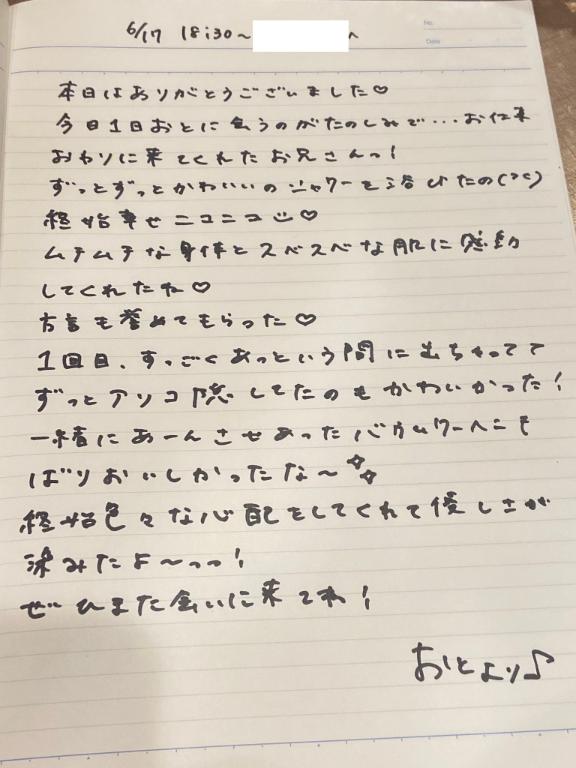 6/17 18:30〜 へ
No.
Date
本日はありがとうございました♡
今日1日おとに会うのがたのしみで…お仕事
おわりに来てくれたお兄さんっ!
ずっとずっとかわいいのシャワーを浴びたの(°°)
終始幸せニコニコ♡
ムチムチな身体とスベスベな肌に感動
してくれたね♡
方言も誉めてもらった♡
1回目、すっごくあっという間に出ちゃってて
ずっとアソコ隠してたのもかわいかった!
一緒にあーんさせあったバウムクーヘンも
ばりおいしかったな〜✧✧
終始色々な心配をしてくれて優しさが
染みたよ〜っっ!
ぜひまた会いに来てね!
おとより♪